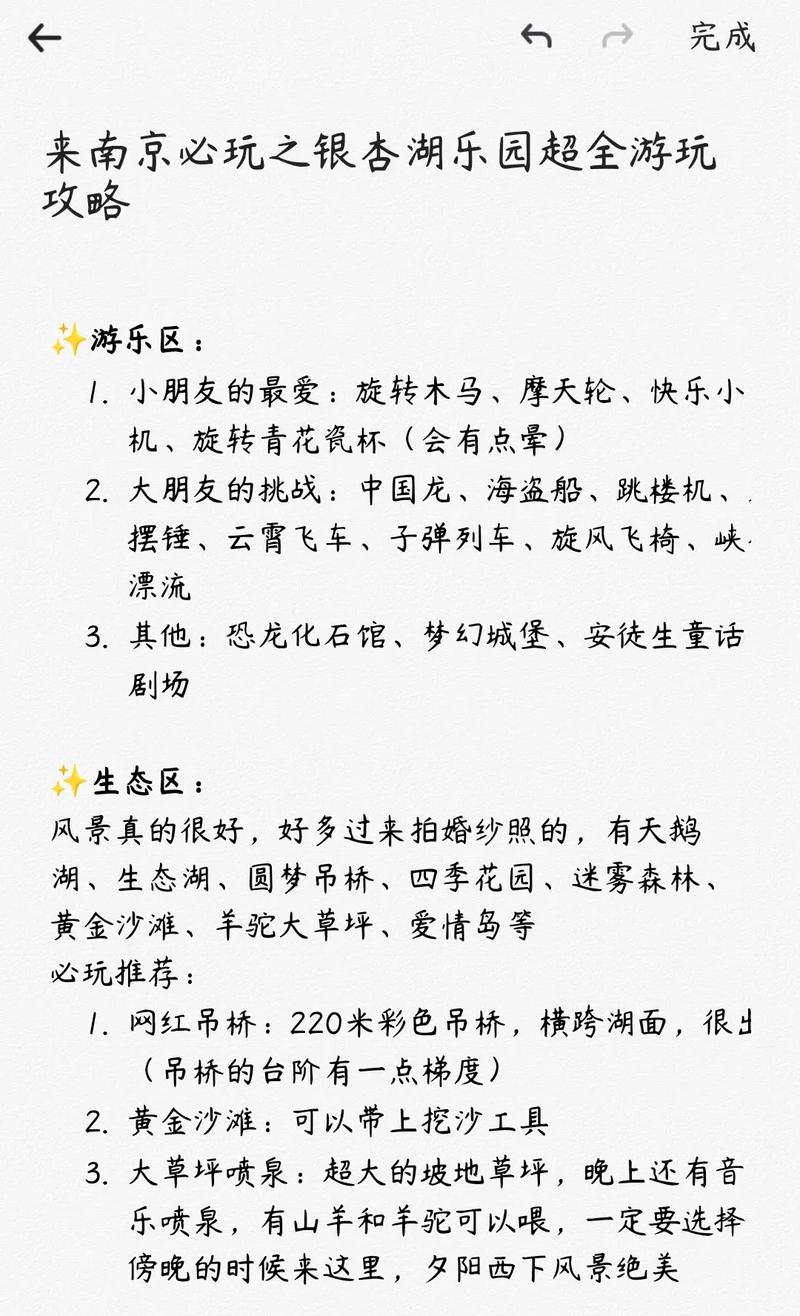 完成
来南京必玩之银杏湖乐园超全游玩
攻略
✨游乐区：
1. 小朋友的最爱：旋转木马、摩天轮、快乐小
机、旋转青花瓷杯（会有点晕）
2. 大朋友的挑战：中国龙、海盗船、跳楼机、
摆锤、云霄飞车、子弹列车、旋风飞椅、峡
漂流
3. 其他：恐龙化石馆、梦幻城堡、安徒生童话
剧场
✨生态区：
风景真的很好，好多过来拍婚纱照的，有天鹅
湖、生态湖、圆梦吊桥、四季花园、迷雾森林、
黄金沙滩、羊驼大草坪、爱情岛等
必玩推荐：
1. 网红吊桥：220米彩色吊桥，横跨湖面，很
（吊桥的台阶有一点梯度）
2. 黄金沙滩：可以带上挖沙工具
3. 大草坪喷泉：超大的坡地草坪，晚上还有音
乐喷泉，有山羊和羊驼可以喂，一定要选择
傍晚的时候来这里，夕阳西下风景绝美